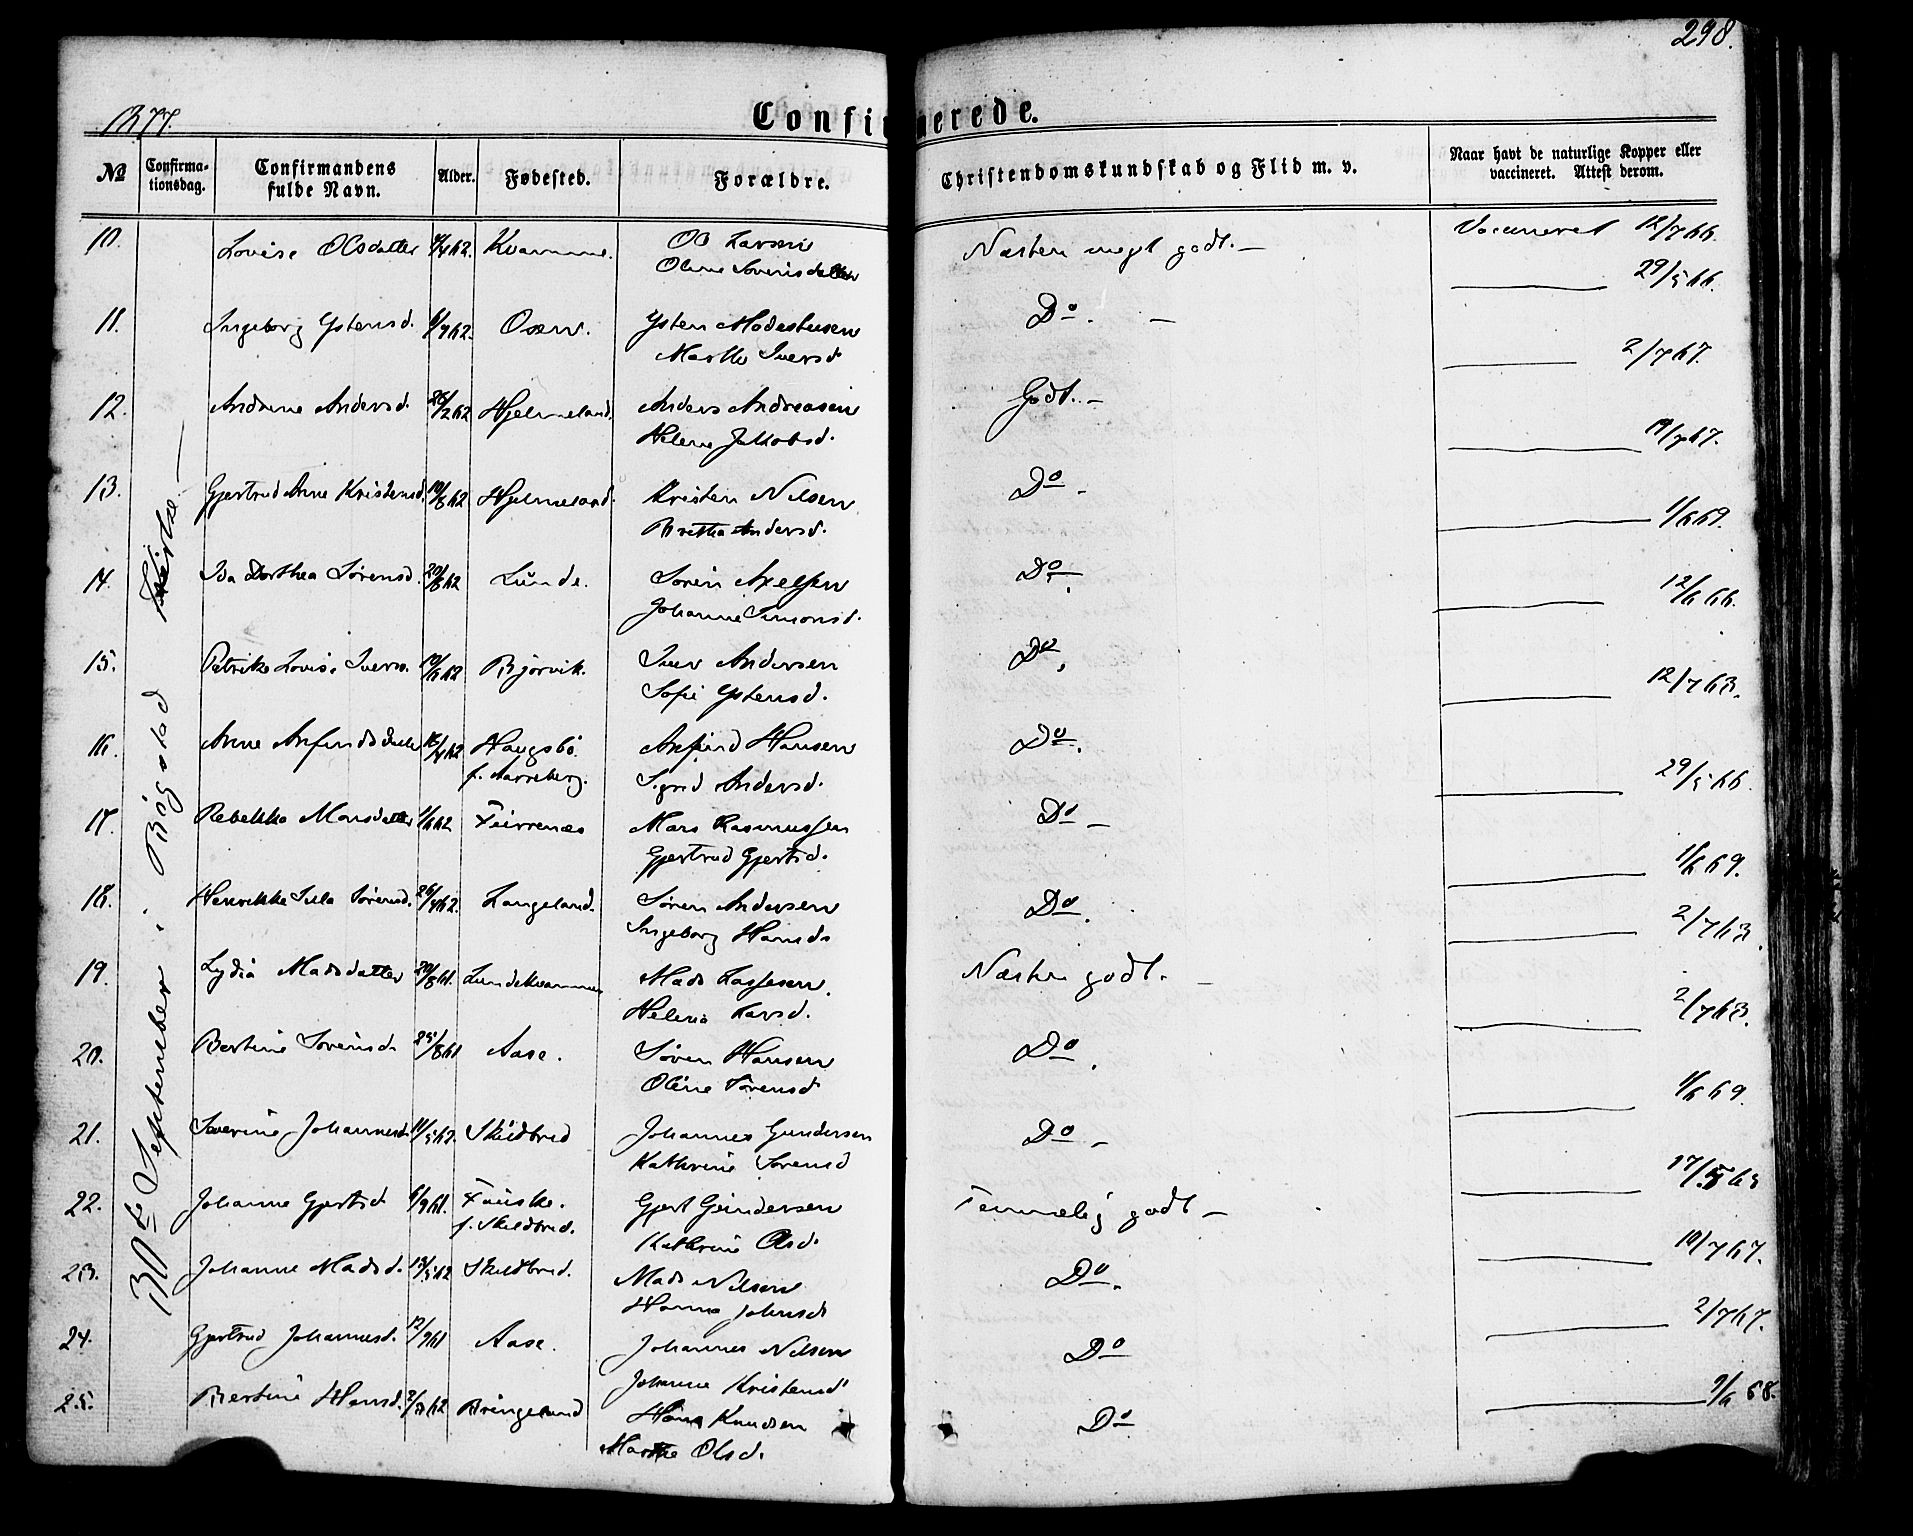 298.
1877.
Confirmerede.
№ Confirma-tionsdag. Confirmandens fulde Navn. Alder. Fødested. Forældre. Christendomskundskab og Flid m. v. Naar havt de naturlige Kopper eller vaccineret. Attest derom.
30te September i Bygstad Kirke.
10. Lovise Olsdatter 4/4 62. Kvamme. Ol Larsen Næsten meget godt. — Vaccineret 12/7 66.
Oline Sørensdatter
11. Ingeborg Ystensd. 6/9 62. Osen. Ysten Modestusen Do. — 29/5 66.
Marthe Iversd
12. Andrine Andersd. 26/2 62 Hjelmeland. Anders Andreasen Godt. — 2/7 67.
Helene Jakobsd.
13. Gjertrud Anne Kristensd. 10/8 62 Hjelmeland. Kristen Nilsen Do - 19/7 67.
Bretha Andersd.
14. Ida Dorthea Sørensd. 20/8 62 Lunde. Søren Axelsen Do. 1/6 69.
Johanne Simonsd.
15. Petrike Lovise Iversd. 19/6 62 Bjørvik. Iver Andersen Do. 12/6 66.
Sofie Ystensd.
16. Anne Anfindsdatter 16/4 62 Haugsbø Anfind Hansen Do. 12/7 63.
f. Aarreberg. Sigrid Andersd.
17. Rebekka Monsdatter 1/6 62 Furrenæs Mons Rasmussen Do — 29/5 66.
Gjertrud Gjertsd.
18. Henrikke Sørensd. 26/4 62. Langeland. Søren Andersen Do. 1/6 69.
Ingeborg Hansd.
19. Lydia Madsdatter 20/8 61. Lundekvammen Mads Lassesen. Næsten godt. — 2/7 63.
Helene Larsd.
20. Bertine Sørensd. 25/8 61 Aase. Søren Hansen Do. 2/7 63.
Oline Sørensd
21. Severine Johannesd. 11/5 62. Skildbred Johannes Gundersen Do — 1/6 69.
Kathrine Sørensd
22. Johanne Gjertsd 6/9 61. Fauske. Gjert Gundersen Temmelig godt — 17/5 63
f. Skildbred. Kathrine Olsd.
23. Johanne Madsd. 13/5 62 Skildbred. Mads Nilsen Do. 19/7 67.
Hanna Johnsd
24. Gjertrud Johannesd. 12/9 61 Aase. Johannes Nilsen Do 2/7 67.
Johanne Kristensd
25. Bertine Hansd. 2/3 62 Bringeland Hans Knudsen Do 9/6 68.
Marthe Olsd.